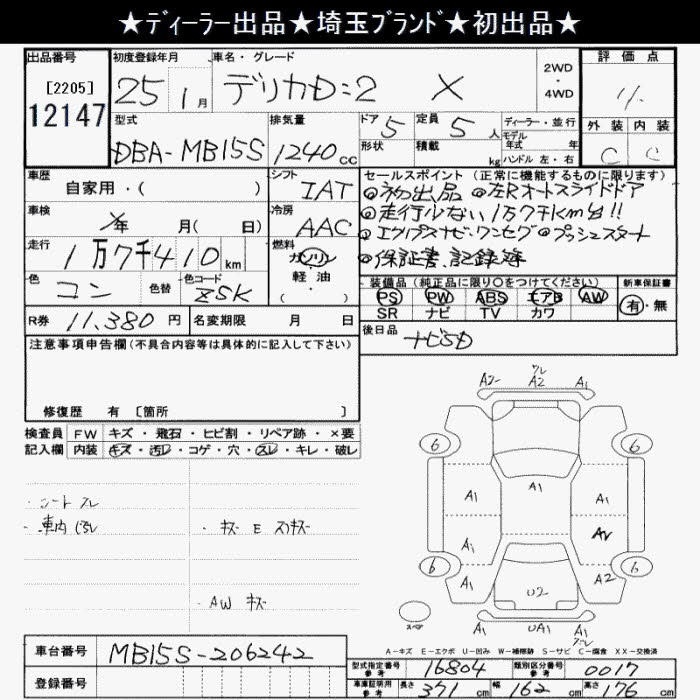 ★ディーラー出品★埼玉ブランド★初出品★
出品番号 初度登録年月 車名・グレード 2WD・4WD 評価点
[2205]
12147
25 1月 デリカD:2 X
外装 内装
C C
型式 排気量 ドア 5 定員 5人 ディーラー・並行
DBA-MB15S 1240cc 形状 積載 kg モデル年式 年
ハンドル 左・右
車歴 シフト セールスポイント(正常に機能するものに限ります)
自家用・( ) IAT ◎初出品 ◎左Rオートスライドドア
車検 冷房 ◎走行少ない1万7千km台!!
年 月( 日) AAC ◎エクリプスナビ・ワンセグ◎プッシュスタート
走行 燃料 ◎保証書、記録簿
1万7千410km ガソリン
軽油・( )
色 色替 色コード 装備品(純正品に限り○をつけてください) 新車保証書
コン ZSK PS PW ABS エアB AW 有・無
SR ナビ TV カワ
R券 11,380円 名変期限 月 日 後日品 ナビSD
注意事項申告欄(不具合内容等は具体的に記入して下さい)
修復歴 有 [箇所 ]
検査員 FW キズ・飛石・ヒビ割・リペア跡・×要
記入欄 内装 キズ・汚レ・コゲ・穴・スレ・キレ・破レ
・シートスレ
・車内汚レ ・キズ E スリキズ
・AW キズ
A2 A1
6 6
A1
A1 A1
A1
6 6
A1 A2
U2
スペア
A1 UA1 A1
A-キズ E-エクボ U-凹み W-補修跡 S-サビ C-腐食 XX-交換済
車台番号 MB15S-206242
登録番号
型式指定番号 参考 16804 類別区分番号 参考 0017
車庫証明用 参考 長さ 371cm 幅 162cm 高さ 176cm